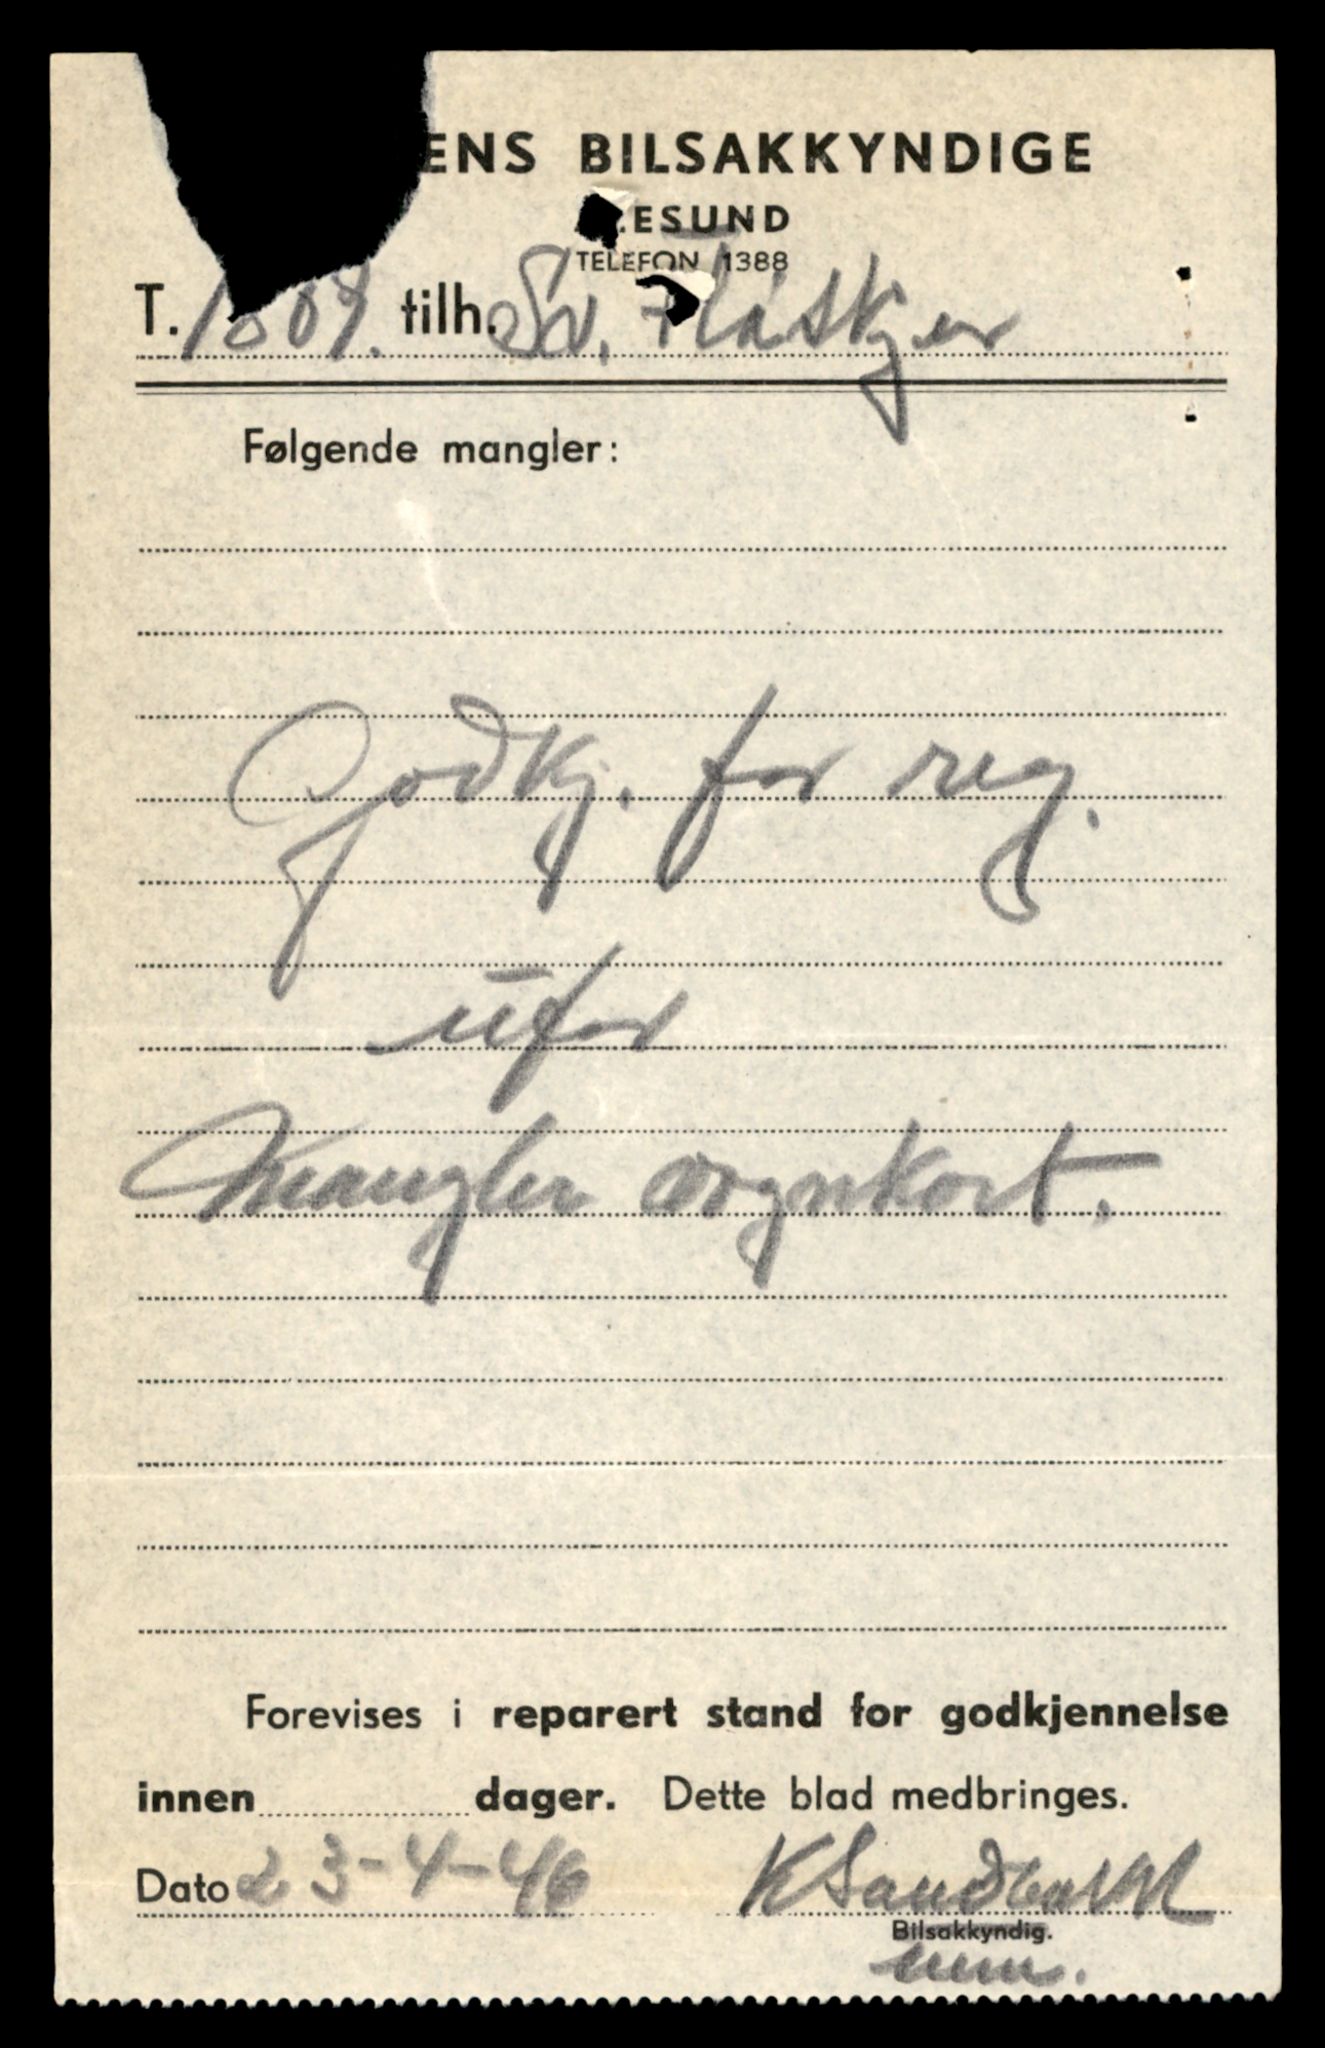 ENS BILSAKKYNDIGE
ÅLESUND
TELEFON 1388
T. 1 tilh. Sv. Flåskjer
Følgende mangler:
Godkj. for reg.
ufor
Mangler vognkort.
Forevises i reparert stand for godkjennelse
innen dager. Dette blad medbringes.
Dato 23-4-46 K Sandbakk
Bilsakkyndig.